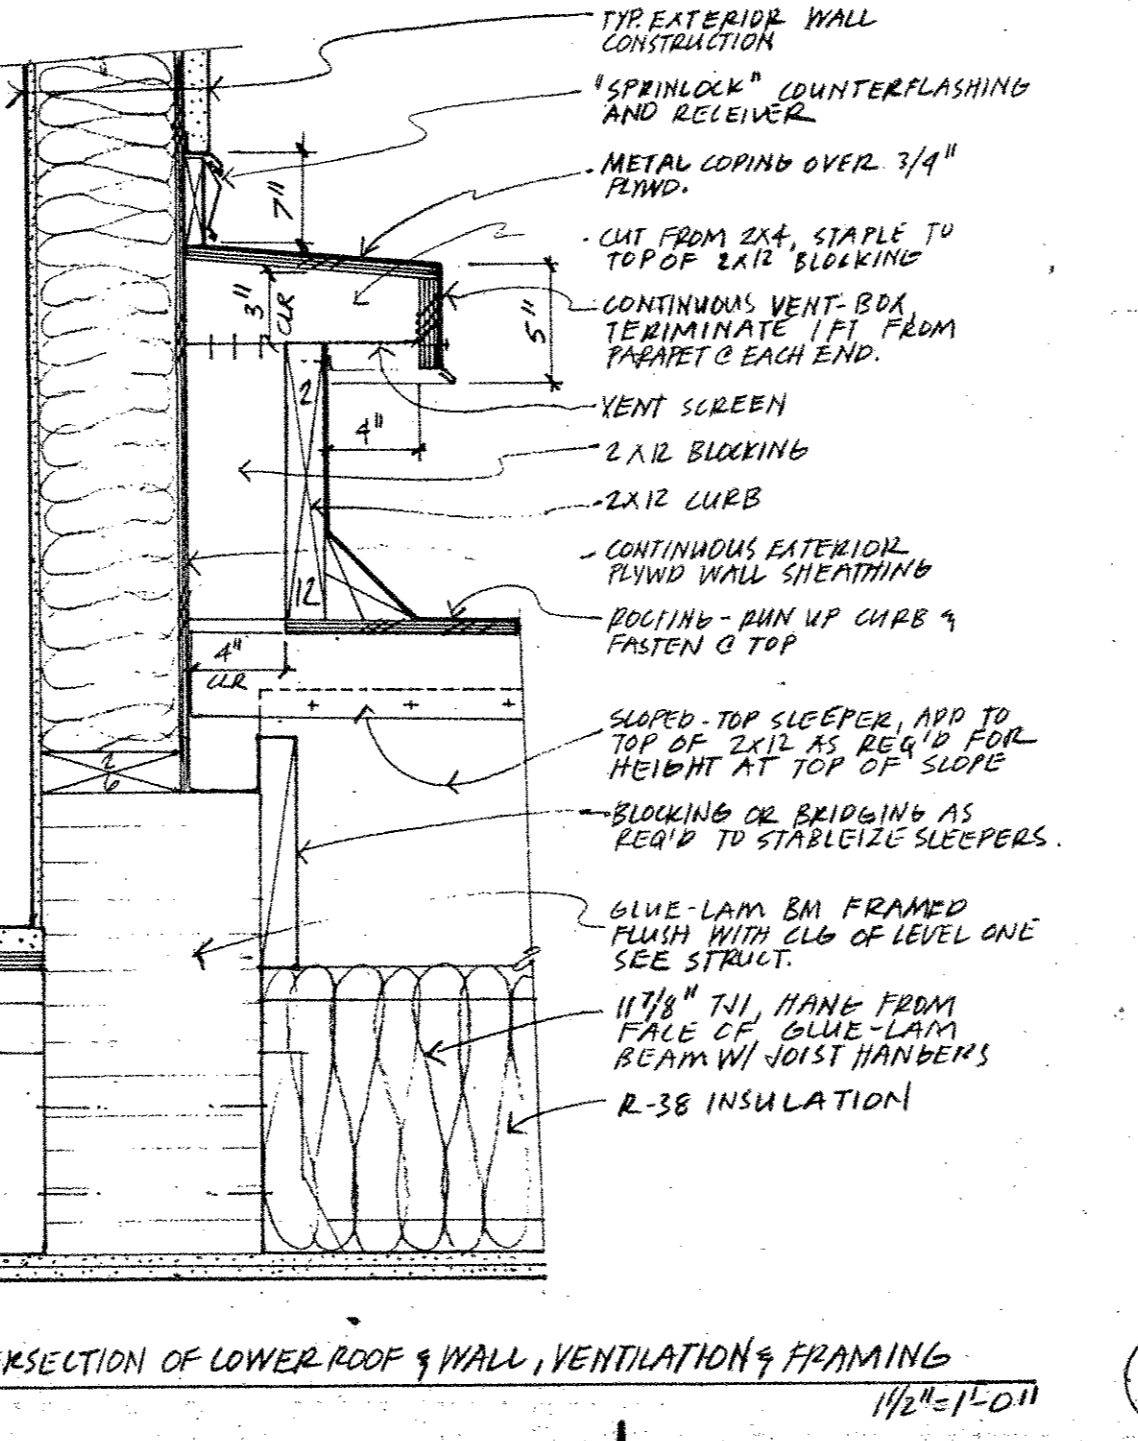 TYP. EXTERIOR WALL
CONSTRUCTION
"SPRINLOCK" COUNTERFLASHING
AND RECEIVER
METAL COPING OVER 3/4"
PLYWD.
CUT FROM 2X4, STAPLE TO
TOP OF 2X12 BLOCKING
CONTINUOUS VENT-BOX,
TERIMINATE 1 FT FROM
PARAPET @ EACH END.
VENT SCREEN
2X12 BLOCKING
2X12 CURB
CONTINUOUS EXTERIOR
PLYWD WALL SHEATHING
ROOFING - RUN UP CURB &
FASTEN @ TOP
SLOPED-TOP SLEEPER, ADD TO
TOP OF 2X12 AS REQ'D FOR
HEIGHT AT TOP OF SLOPE
BLOCKING OR BRIDGING AS
REQ'D TO STABLEIZE SLEEPERS.
GLUE-LAM BM FRAMED
FLUSH WITH CLG OF LEVEL ONE
SEE STRUCT.
11 7/8" TJI, HANG FROM
FACE OF GLUE-LAM
BEAM W/ JOIST HANGERS
R-38 INSULATION
7"
3"
CLR
5"
2
4"
12
4"
CLR
2
6
ERSECTION OF LOWER ROOF & WALL, VENTILATION & FRAMING
1 1/2"=1'-0"